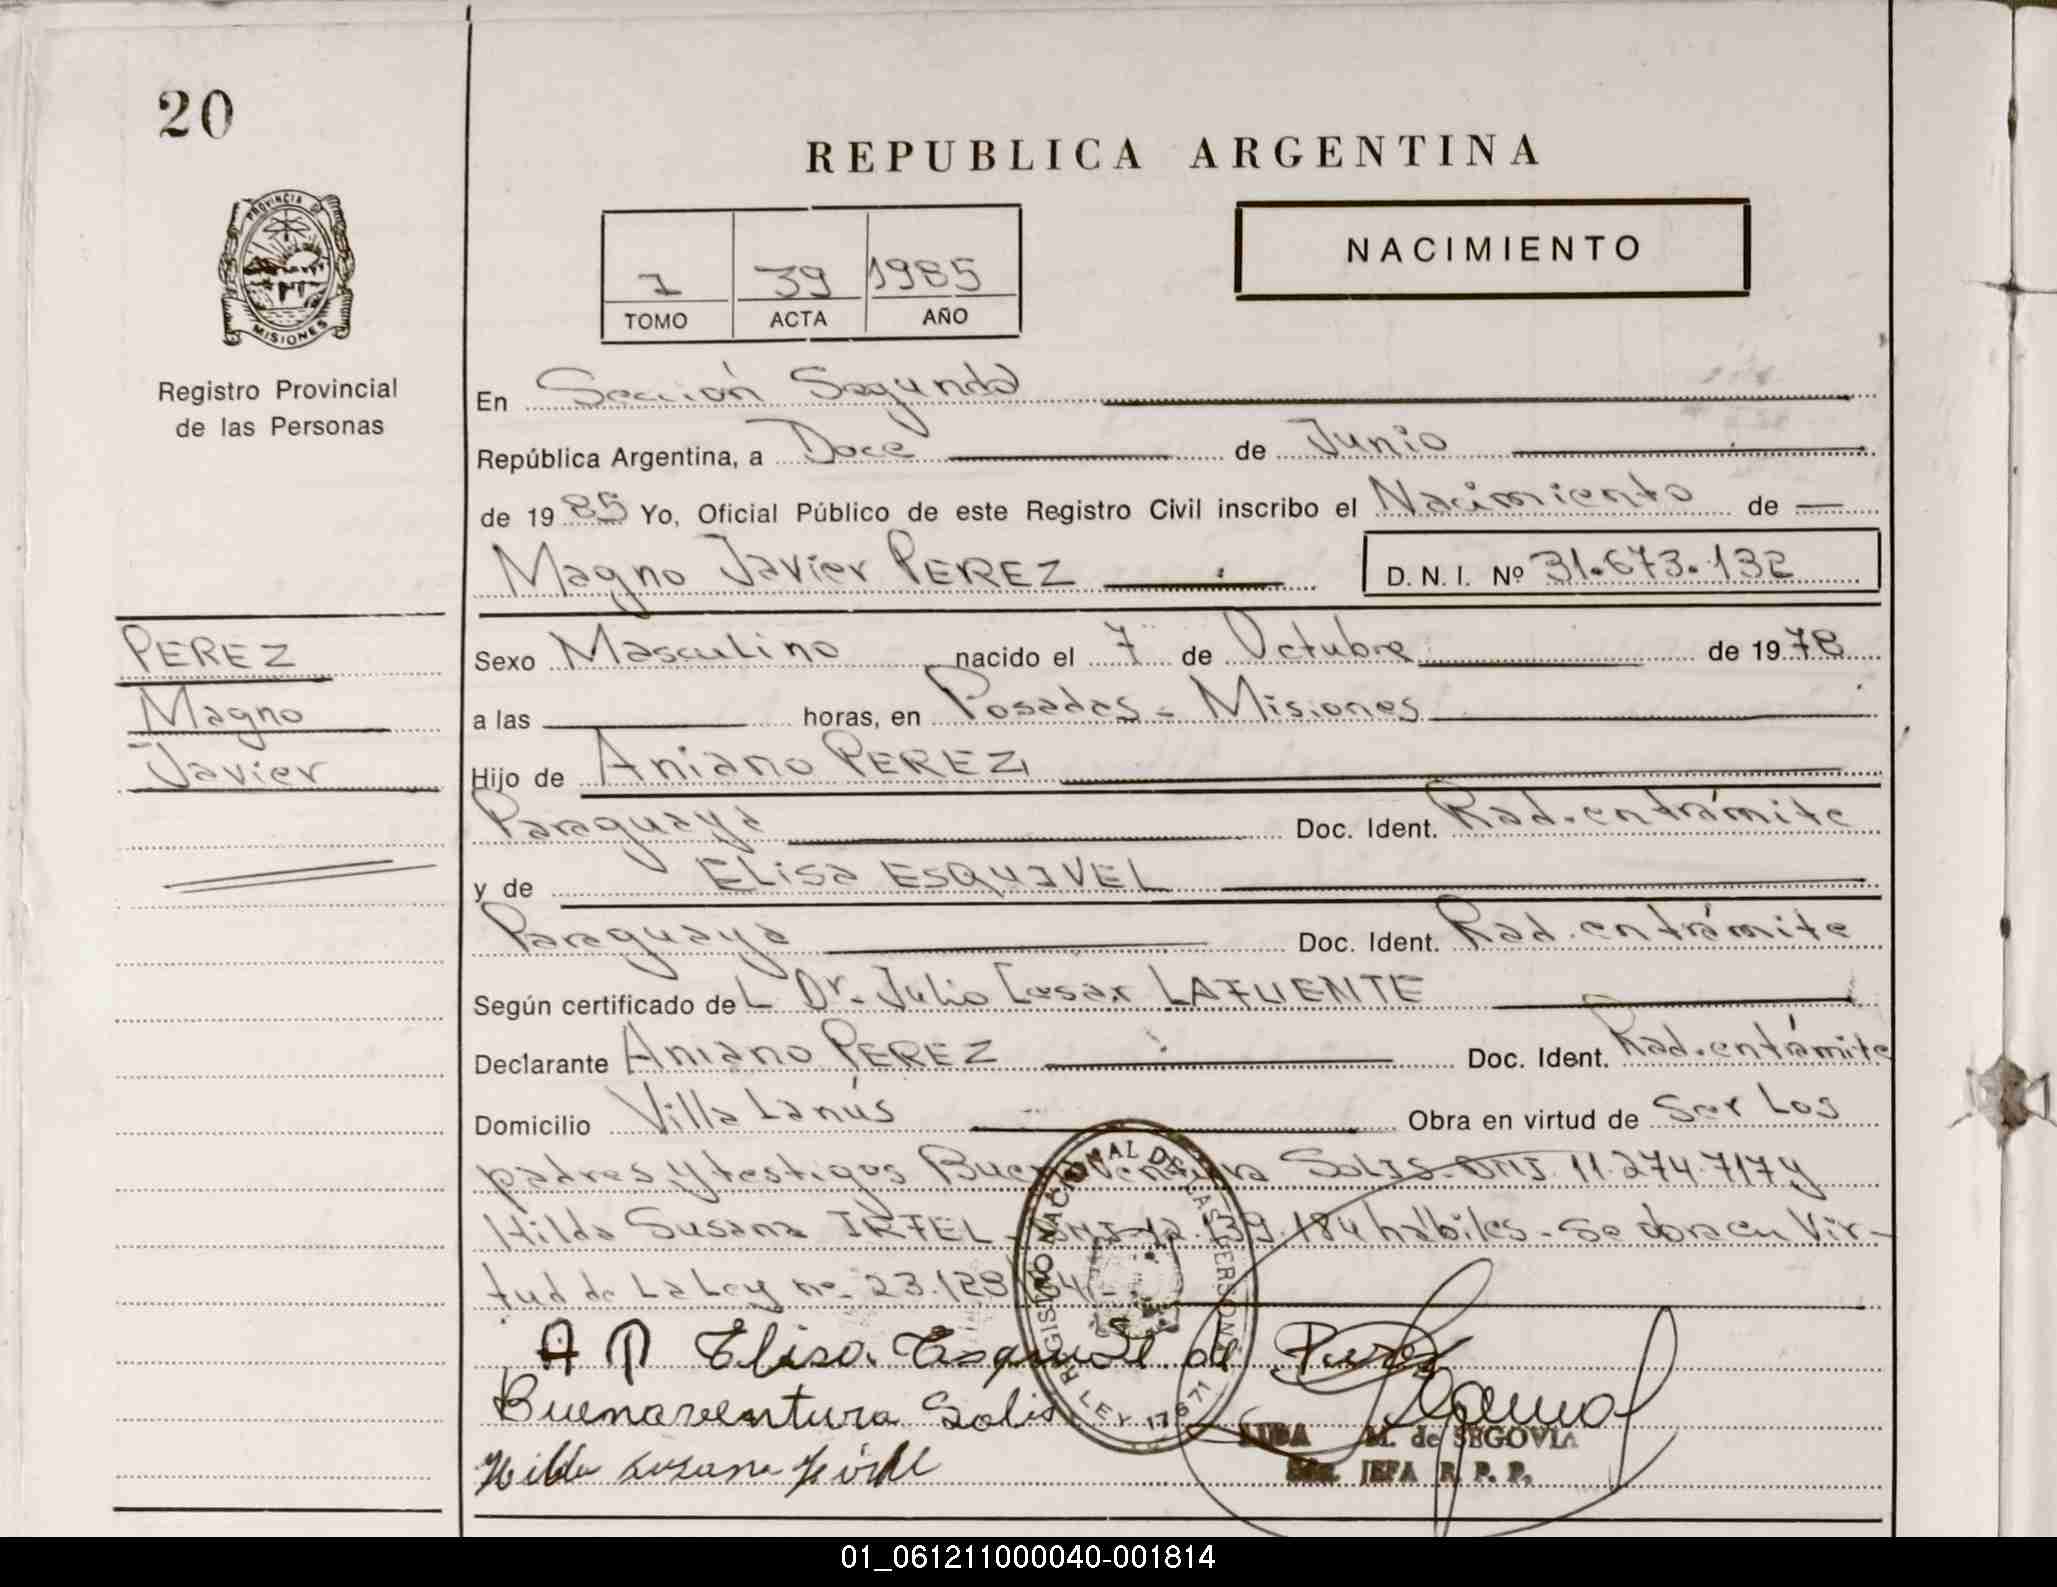 20
REPUBLICA ARGENTINA
PROVINCIA DE
MISIONES
1 39 1985
TOMO ACTA AÑO
NACIMIENTO
Registro Provincial
de las Personas
En Sección Segunda
República Argentina, a Doce de Junio
de 1985 Yo, Oficial Público de este Registro Civil inscribo el Nacimiento de
Magno Javier PEREZ D. N. I. Nº 31.673.132
PEREZ
Magno
Javier
Sexo Masculino nacido el 7 de Octubre de 1978
a las horas, en Posadas - Misiones
Hijo de Aniano PEREZ
Paraguaya Doc. Ident. Rad. en trámite
y de ELISA ESQUIVEL
Paraguaya Doc. Ident. Rad. en trámite
Según certificado del Dr. Julio Cesar LAFUENTE
Declarante Aniano PEREZ Doc. Ident. Rad. en trámite
Domicilio Villa Lanús Obra en virtud de ser los
padres, y testigos Buenaventura SOLIS - DNI. 11.274.717 y
Hilda Susana - DNI 12. 39.184 hábiles - Se labra en Vir-
tud de La Ley nº 23.128/84 -
A P Elisa Esquivel de Perez
Buenaventura Solis
Hilda Susana
REGISTRO NACIONAL DE LAS PERSONAS
LEY 17671
M. de SEGOVIA
JEFA R. P. P.
01_061211000040-001814